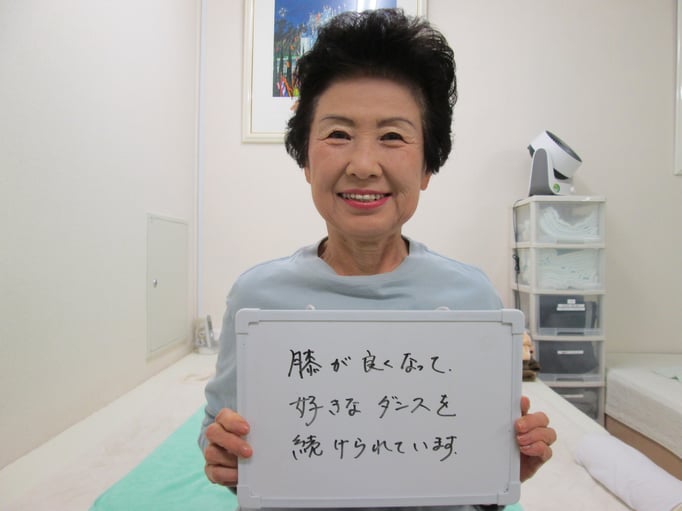 膝が良くなって、
好きなダンスを
続けられています.